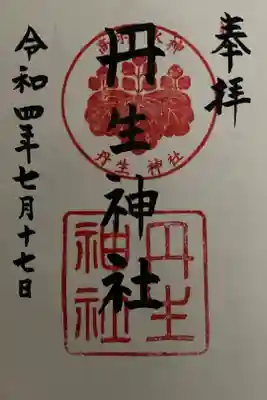 奉拝
丹生神社
丹生神社
丹生神社
令和四年七月十七日